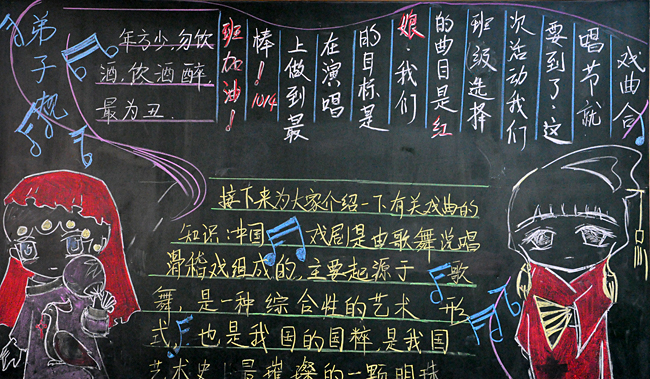 戏曲合
唱节就
要到了,这
次活动我们
班级选择
的曲目是红
娘。我们
的目标是
在演唱
上做到最
棒!1014
班加油!
弟子规
年方少,勿饮
酒,饮酒醉
最为丑.
接下来为大家介绍一下有关戏曲的
知识:中国戏剧是由歌舞说唱
滑稽戏组成的,主要起源于歌
舞,是一种综合性的艺术形
式,也是我国的国粹是我国
艺术史上最璀璨的一颗明珠